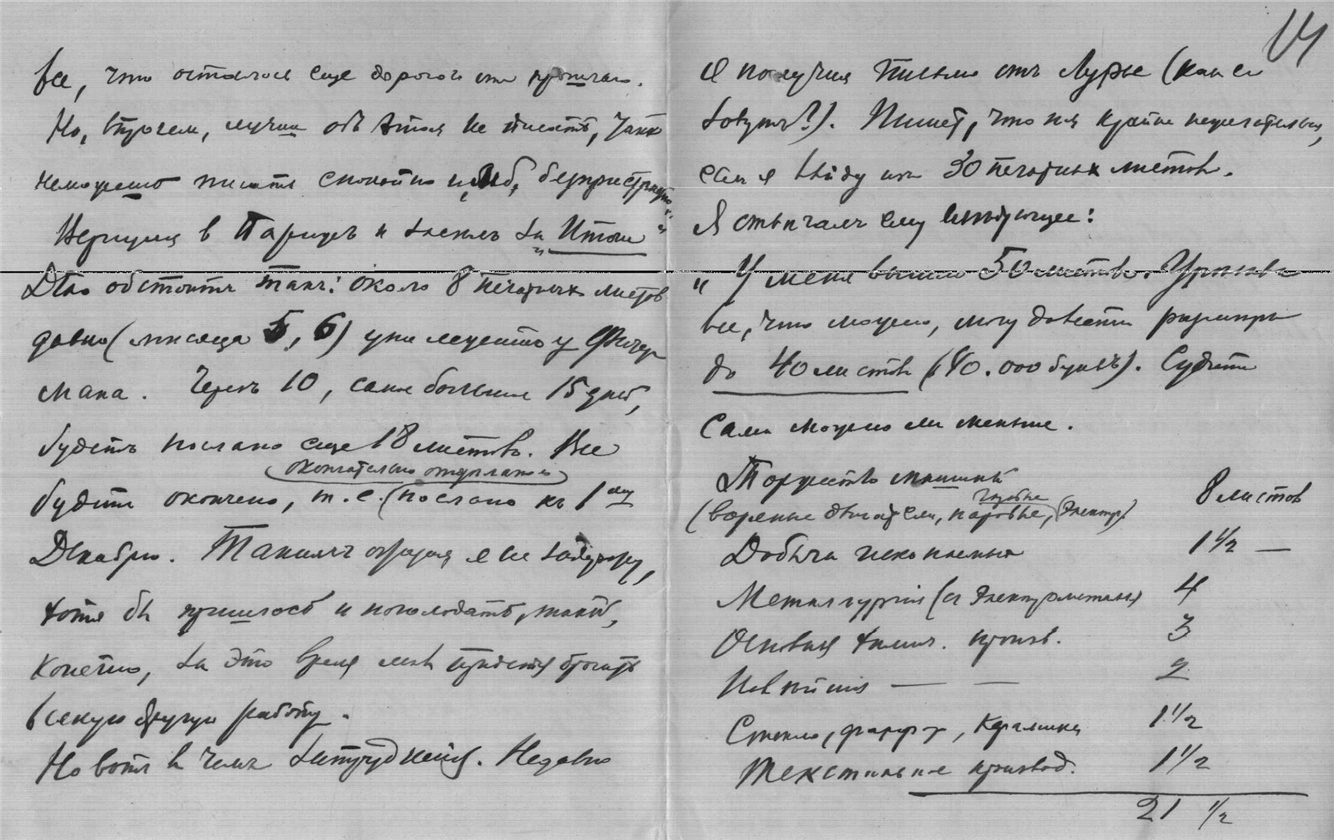 все, что осталося еще дорогого от прошлаго.
Но, впрочем, лучше объ этом не писать, такъ
неможешь писать спокойно и, беспристрастно.
Вернулся в Парижъ и засѣлъ за "Итоги"
Дѣло обстоитъ такъ: около 8 печатныхъ листов
давно (мѣсяца 5, 6) уже лежитъ у
мана. Через 10, самое большее 15 дней,
будетъ послано еще 18 листовъ. Все
(окончательно отдѣлано)
будетъ окончено, т. е. (послано къ 1ому
Декабрю. Такимъ образом я не задержу,
хотя бы пришлось и поголодать, такъ,
конечно, за это время мнѣ придется бросить
всякую другую работу.
Но вотъ в чемъ затруднение. Недавно
14
я получил письмо отъ Лурье (как его
зовутъ?). Пишет, что им крайне нежелательно,
если я выйду из 30 печатных листов.
Я отвѣчалъ ему следующее:
"У меня вышло 50 листовъ. Урѣзывая
все, что можно, могу довести размѣръ
до 40 листов (40.000 буквъ). Судите
сами можно ли меньше.
Торжество машины
газовые
(водяные двигатели, паровые, электр.) 8 листов
Добыча ископаемых 1 1/2 —
Металлургия (съ электрометал.) 4
Основныя химич. произв. 3
Новѣйшия — — 2
Стекло, фарфор, Керамика 1 1/2
Текстильное производ. 1 1/2
21 1/2